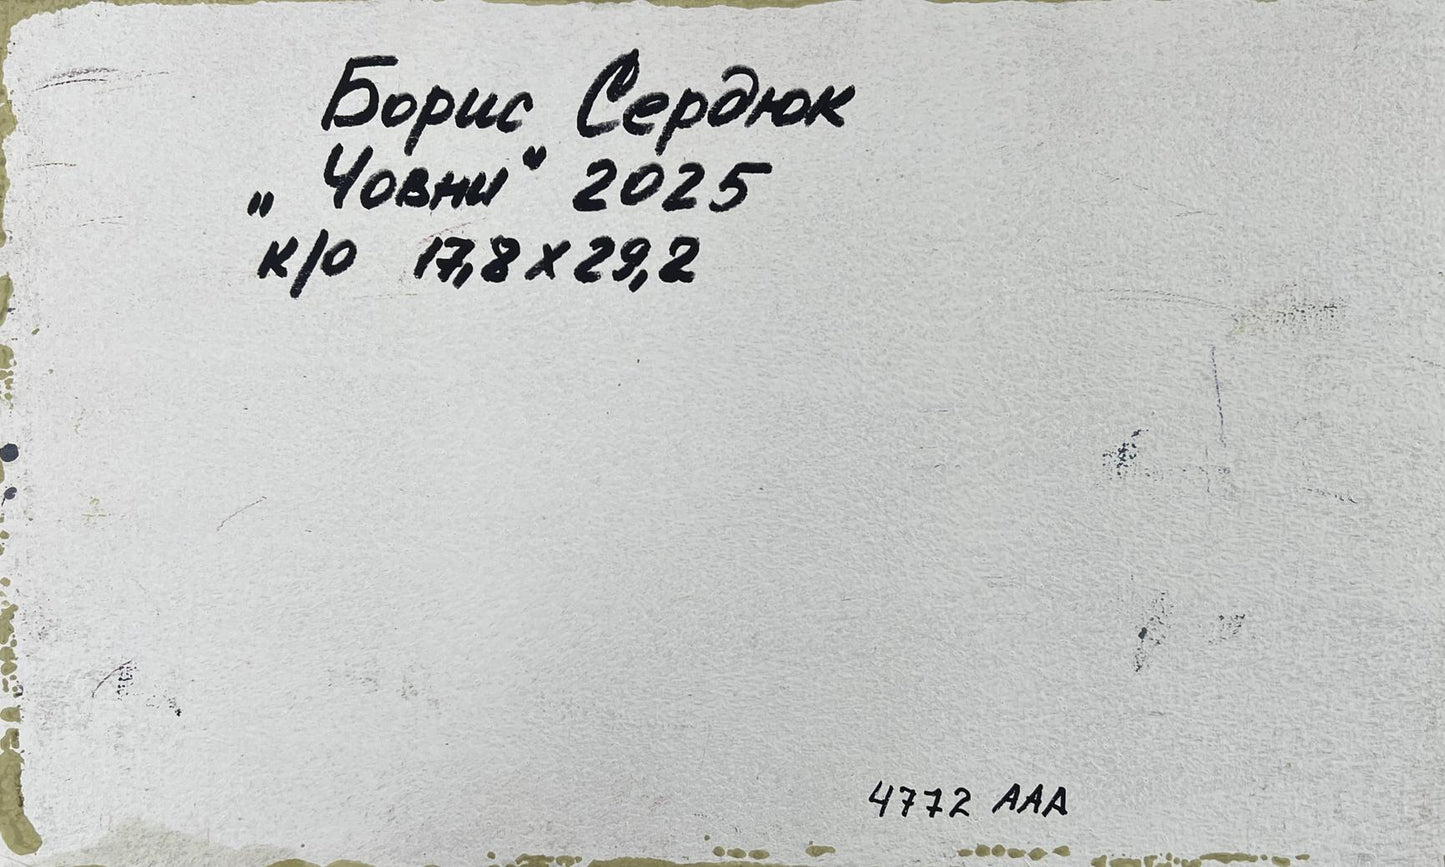 Борис Сердюк
„Човни“ 2025
к/о 17,8 х 29,2
4772 ААА